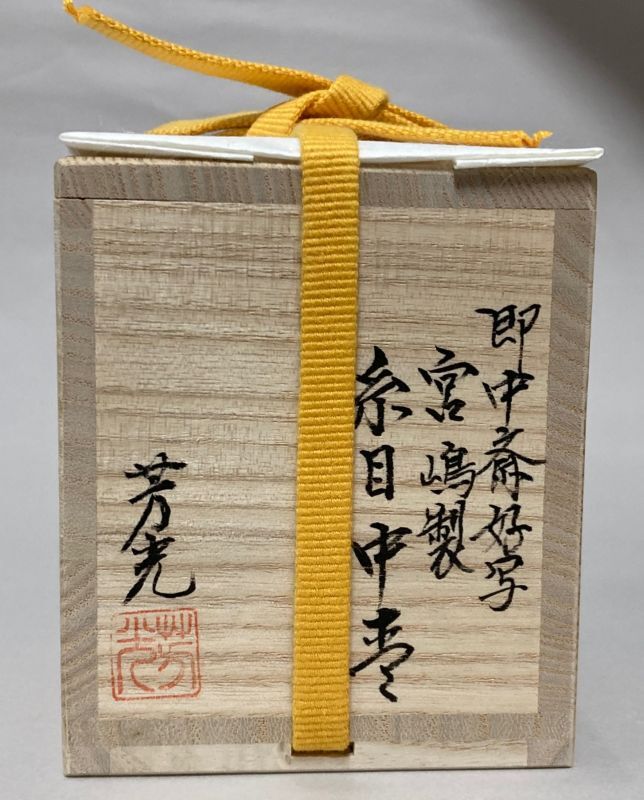 即中斎好写
宮嶋製
糸目中棗
芳光
芳光